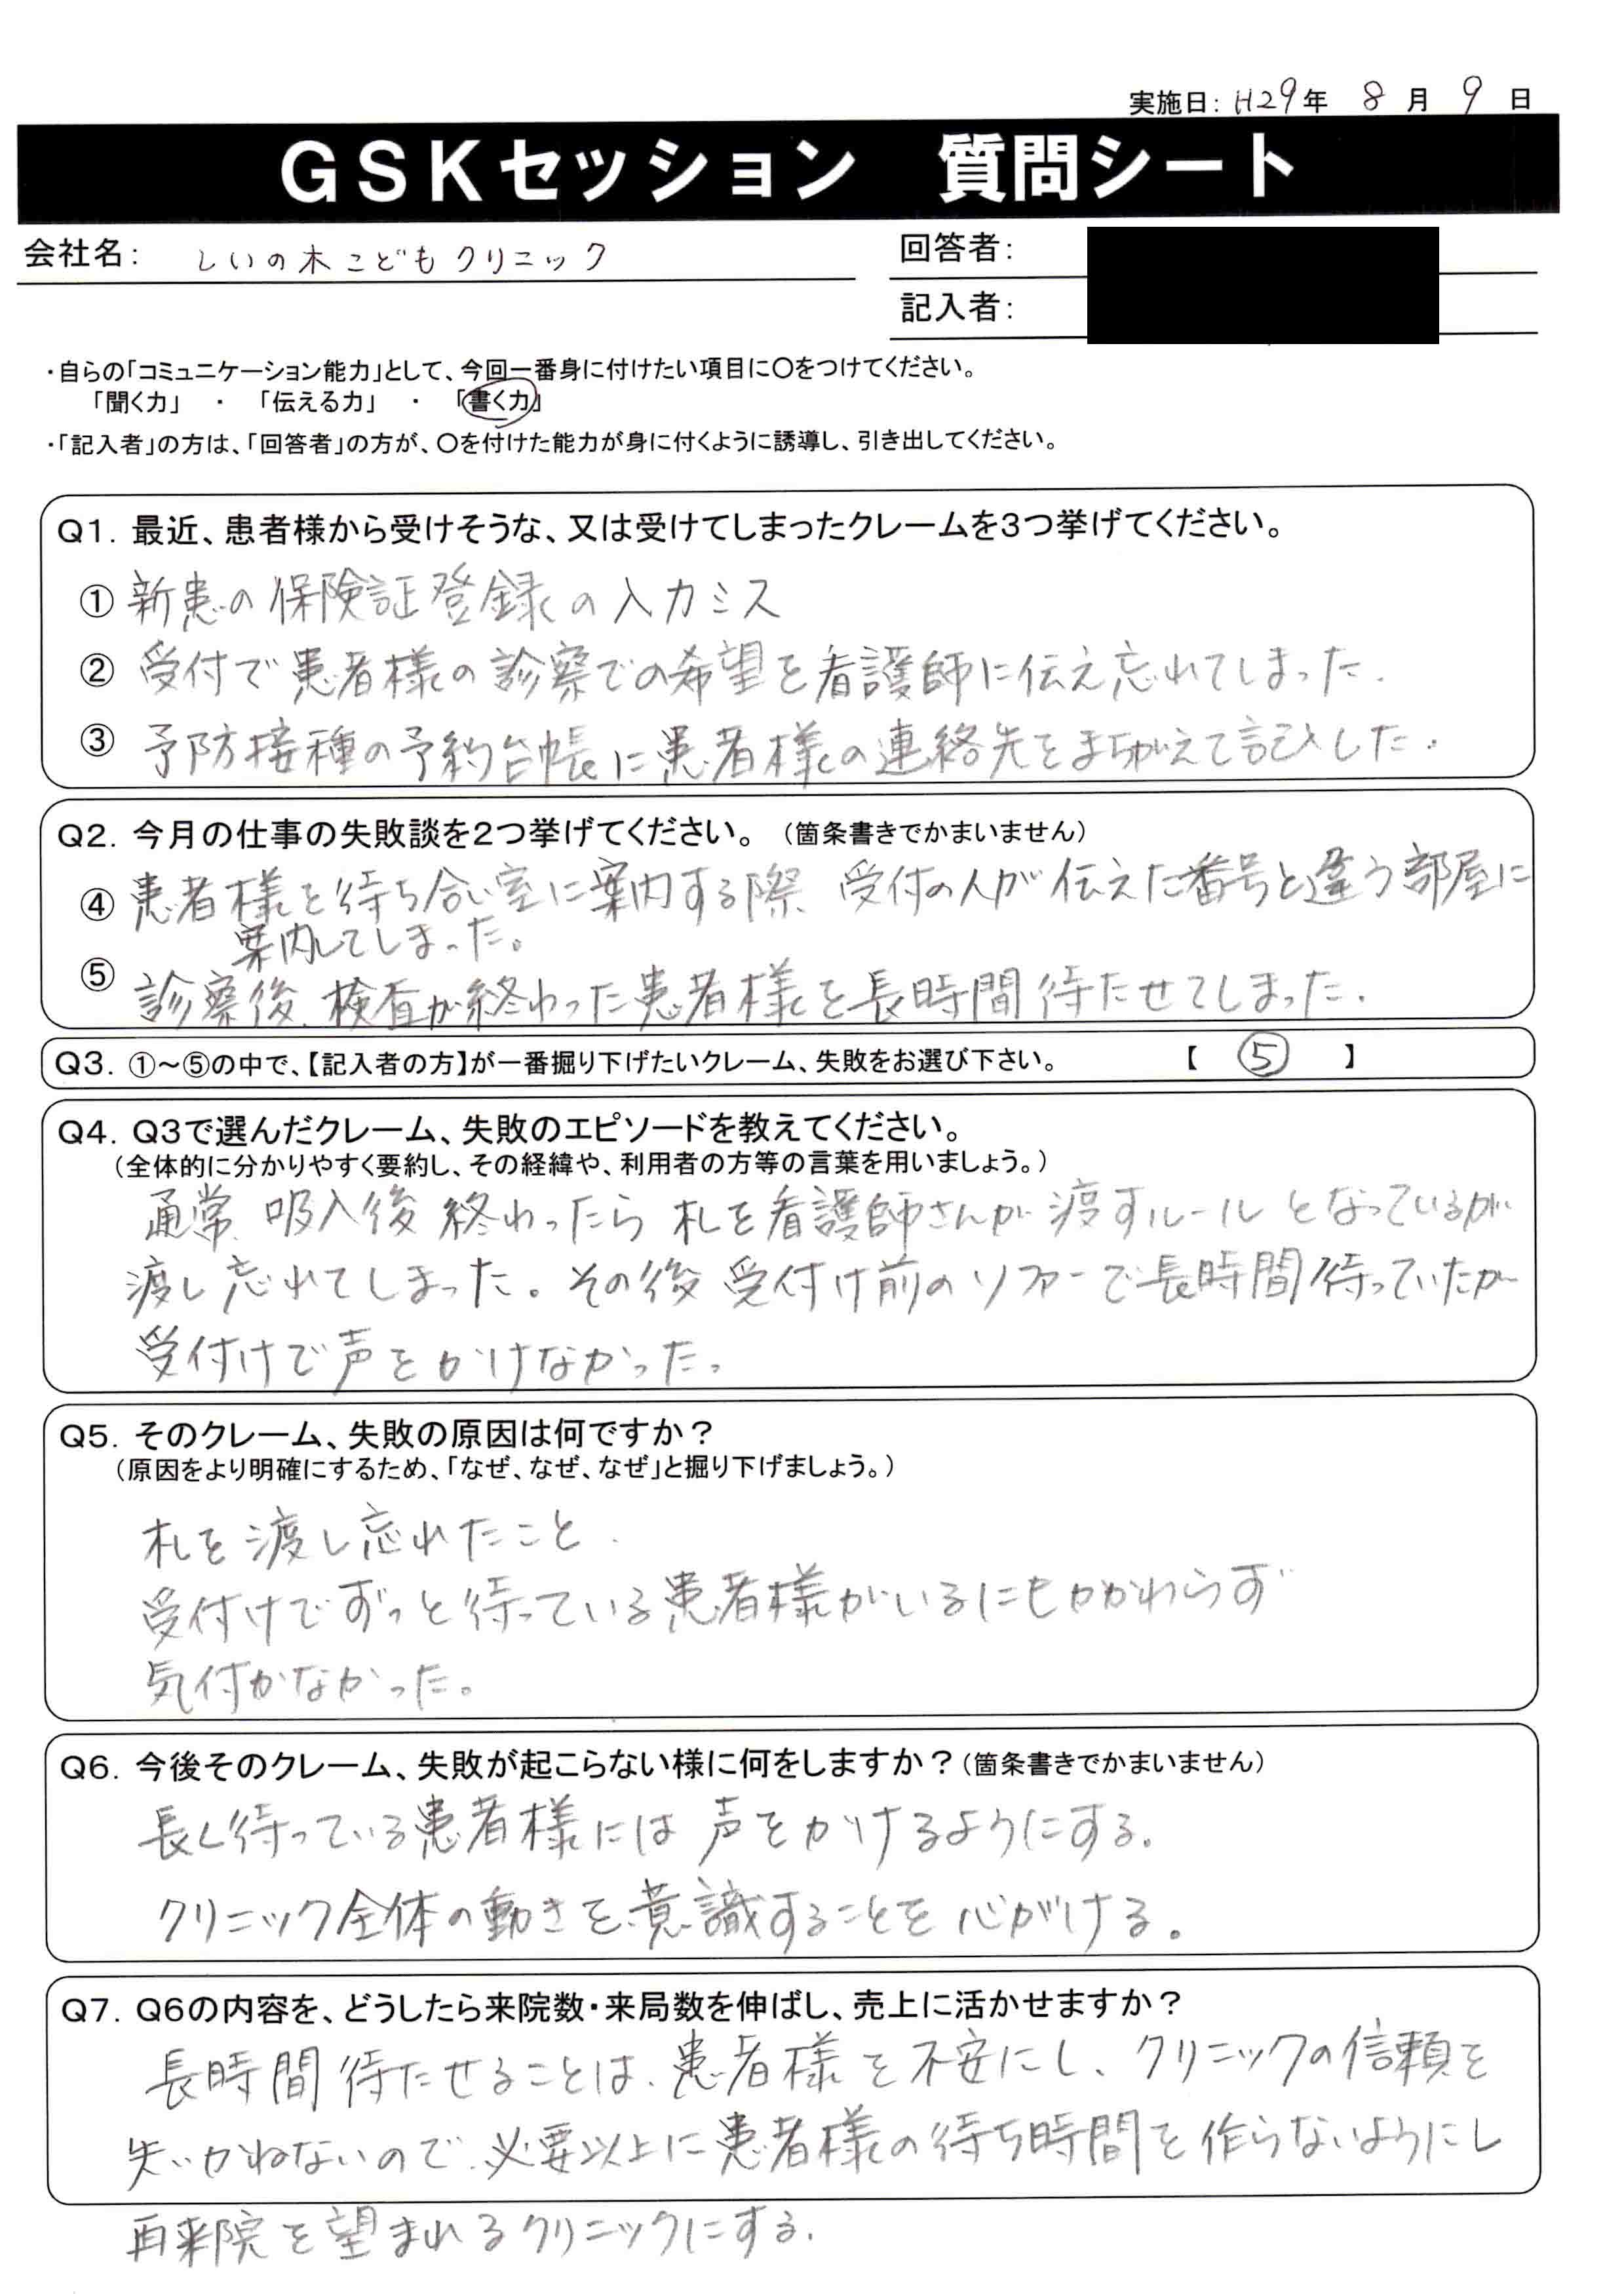 実施日：H29年 8月 9日
GSKセッション 質問シート
会社名： しいの木こどもクリニック
回答者：
記入者：
・自らの「コミュニケーション能力」として、今回一番身に付けたい項目に〇をつけてください。
「聞く力」 ・ 「伝える力」 ・ 「書く力」
・「記入者」の方は、「回答者」の方が、〇を付けた能力が身に付くように誘導し、引き出してください。
Q1. 最近、患者様から受けそうな、又は受けてしまったクレームを3つ挙げてください。
① 新患の保険証登録の入力ミス
② 受付で患者様の診察での希望を看護師に伝え忘れてしまった.
③ 予防接種の予約台帳に患者様の連絡先をまちがえて記入した.
Q2. 今月の仕事の失敗談を2つ挙げてください。（箇条書きでかまいません）
④ 患者様を待ち合い室に案内する際、受付の人が伝えた番号と違う部屋に
案内してしまった。
⑤ 診察後、検査が終わった患者様を長時間待たせてしまった.
Q3. ①～⑤の中で、【記入者の方】が一番掘り下げたいクレーム、失敗をお選び下さい。 【 ⑤ 】
Q4. Q3で選んだクレーム、失敗のエピソードを教えてください。
（全体的に分かりやすく要約し、その経緯や、利用者の方等の言葉を用いましょう。）
通常、吸入後終わったら札を看護師さんが渡すルールとなっているが、
渡し忘れてしまった。その後受付け前のソファーで長時間待っていたが
受付けで声をかけなかった。
Q5. そのクレーム、失敗の原因は何ですか？
（原因をより明確にするため、「なぜ、なぜ、なぜ」と掘り下げましょう。）
札を渡し忘れたこと.
受付けでずっと待っている患者様がいるにもかかわらず
気付かなかった。
Q6. 今後そのクレーム、失敗が起こらない様に何をしますか？（箇条書きでかまいません）
長く待っている患者様には声をかけるようにする。
クリニック全体の動きを意識することを心がける。
Q7. Q6の内容を、どうしたら来院数・来局数を伸ばし、売上に活かせますか？
長時間待たせることは、患者様を不安にし、クリニックの信頼を
失いかねないので、必要以上に患者様の待ち時間を作らないようにし
再来院を望まれるクリニックにする.